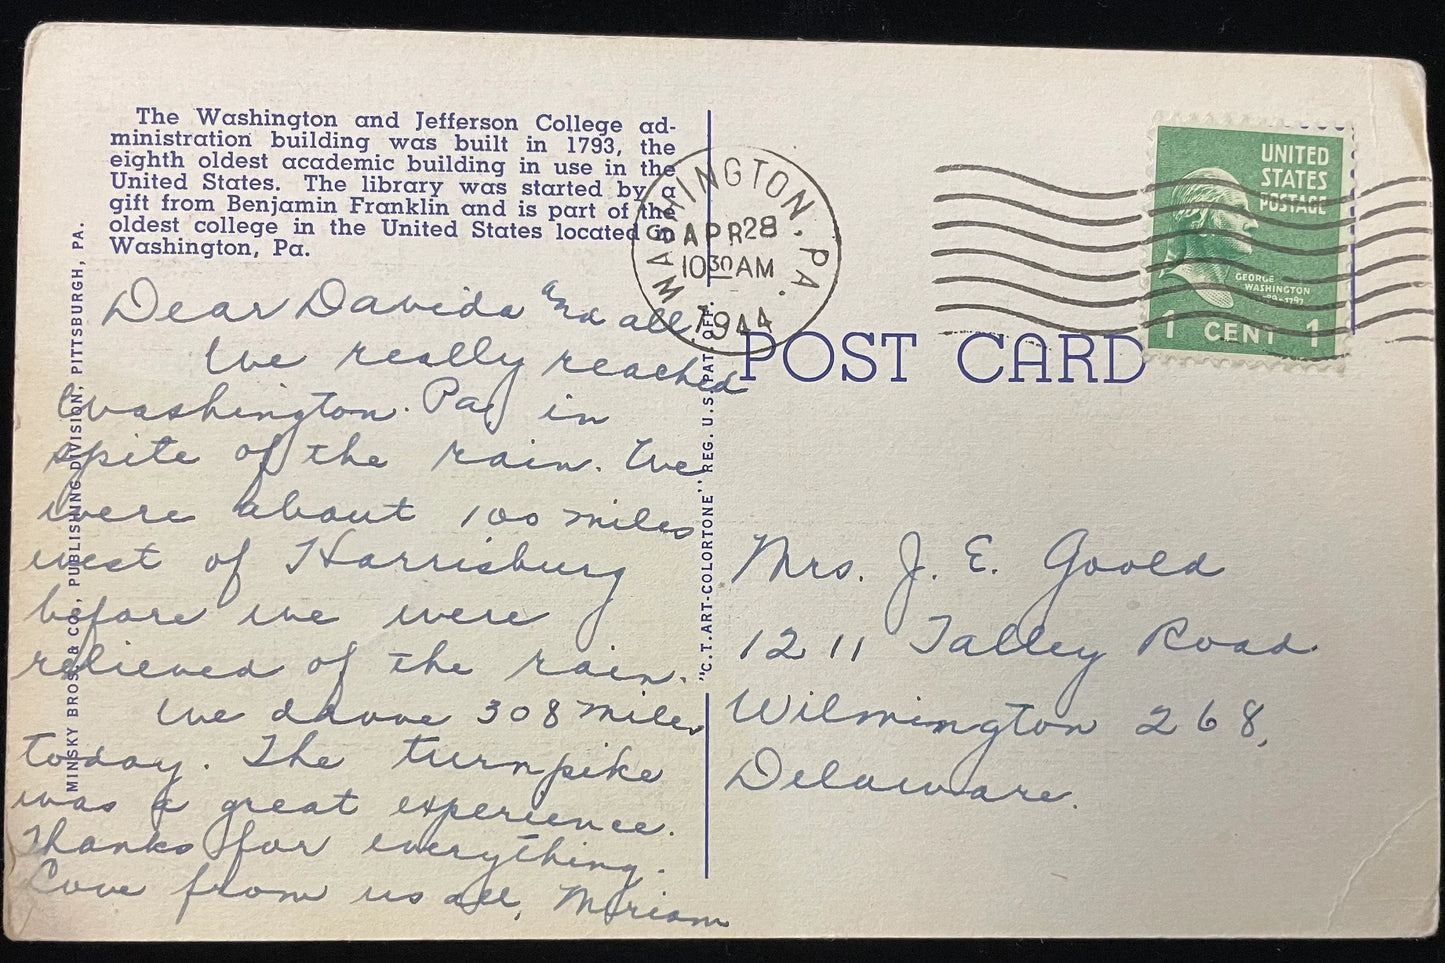 The Washington and Jefferson College ad-
ministration building was built in 1793, the
eighth oldest academic building in use in the
United States. The library was started by a
gift from Benjamin Franklin and is part of the
oldest college in the United States located in
Washington, Pa.
MINSKY BROS. & CO., PUBLISHING DIVISION, PITTSBURGH, PA.
Dear Davida and all,
We really reached
Washington. Pa. in
spite of the rain. We
were about 100 miles
west of Harrisburg
before we were
relieved of the rain.
We drove 308 miles
today. The turnpike
was a great experience.
Thanks for everything.
Love from us all, Miriam
"C.T. ART-COLORTONE" REG. U.S. PAT. OFF.
WASHINGTON, PA.
APR 28
10 30 AM
1944
UNITED
STATES
POSTAGE
GEORGE
WASHINGTON
1 CENT 1
POST CARD
Mrs. J. E. Goold
1211 Talley Road
Wilmington 268,
Delaware.